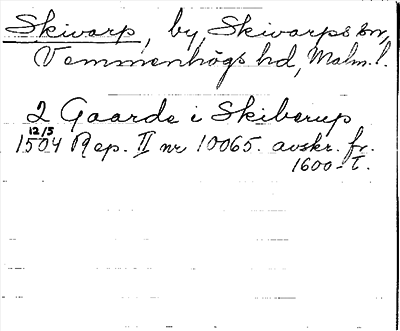 Skivarp, by, Skivarps sn,
Vemmenhögs hd, Malm. l.
2 Gaarde i Skiberup
12/5
1504 Rep. II nr 10065. avskr. fr.
1600-t.